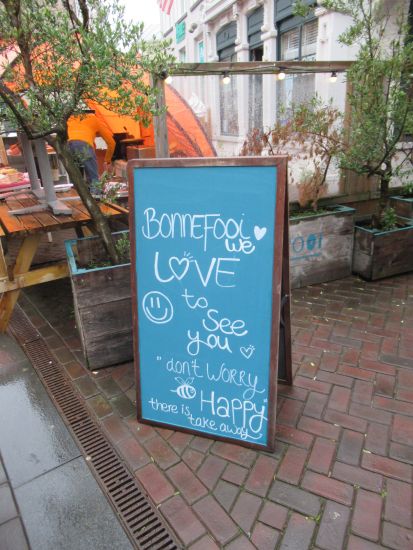 BONNEFOOI
we
LOVE
to
See
you
"don't WORRY
HAPPY"
there is
take away